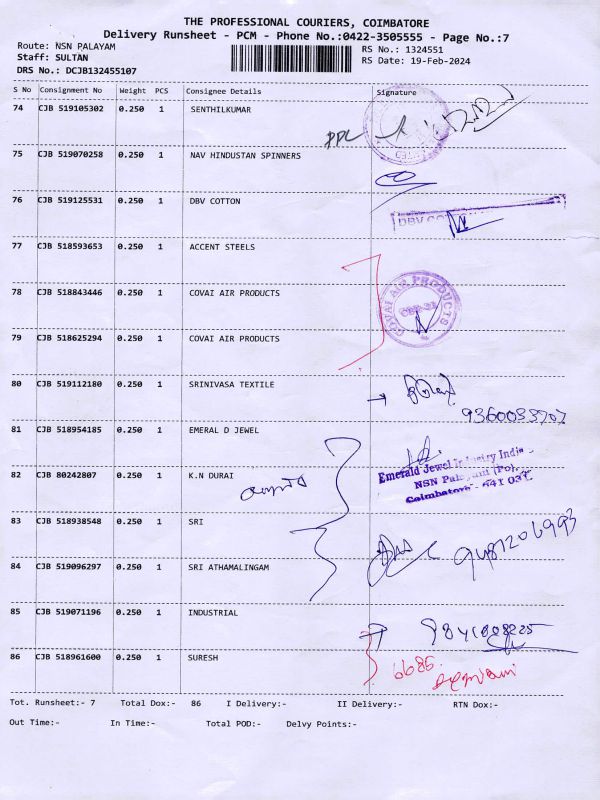 THE PROFESSIONAL COURIERS, COIMBATORE
Delivery Runsheet - PCM - Phone No.:0422-3505555 - Page No.:7
Route: NSN PALAYAM
RS No.: 1324551
Staff: SULTAN
RS Date: 19-Feb-2024
DRS No.: DCJB132455107
S No Consignment No Weight PCS Consignee Details Signature
74 CJB 519105302 0.250 1 SENTHILKUMAR
PPL
75 CJB 519070258 0.250 1 NAV HINDUSTAN SPINNERS
76 CJB 519125531 0.250 1 DBV COTTON
DBV CO
77 CJB 518593653 0.250 1 ACCENT STEELS
78 CJB 518843446 0.250 1 COVAI AIR PRODUCTS
COVAI AIR PRODUCTS
79 CJB 518625294 0.250 1 COVAI AIR PRODUCTS
80 CJB 519112180 0.250 1 SRINIVASA TEXTILE
81 CJB 518954185 0.250 1 EMERAL D JEWEL
Emerald Jewel Industry India
82 CJB 80242807 0.250 1 K.N DURAI
NSN Palayam (Po),
Coimbatore - 641 031
83 CJB 518938548 0.250 1 SRI
84 CJB 519096297 0.250 1 SRI ATHAMALINGAM
85 CJB 519071196 0.250 1 INDUSTRIAL
86 CJB 518961600 0.250 1 SURESH
6686
Tot. Runsheet:- 7 Total Dox:- 86 I Delivery:- II Delivery:- RTN Dox:-
Out Time:- In Time:- Total POD:- Delvy Points:-